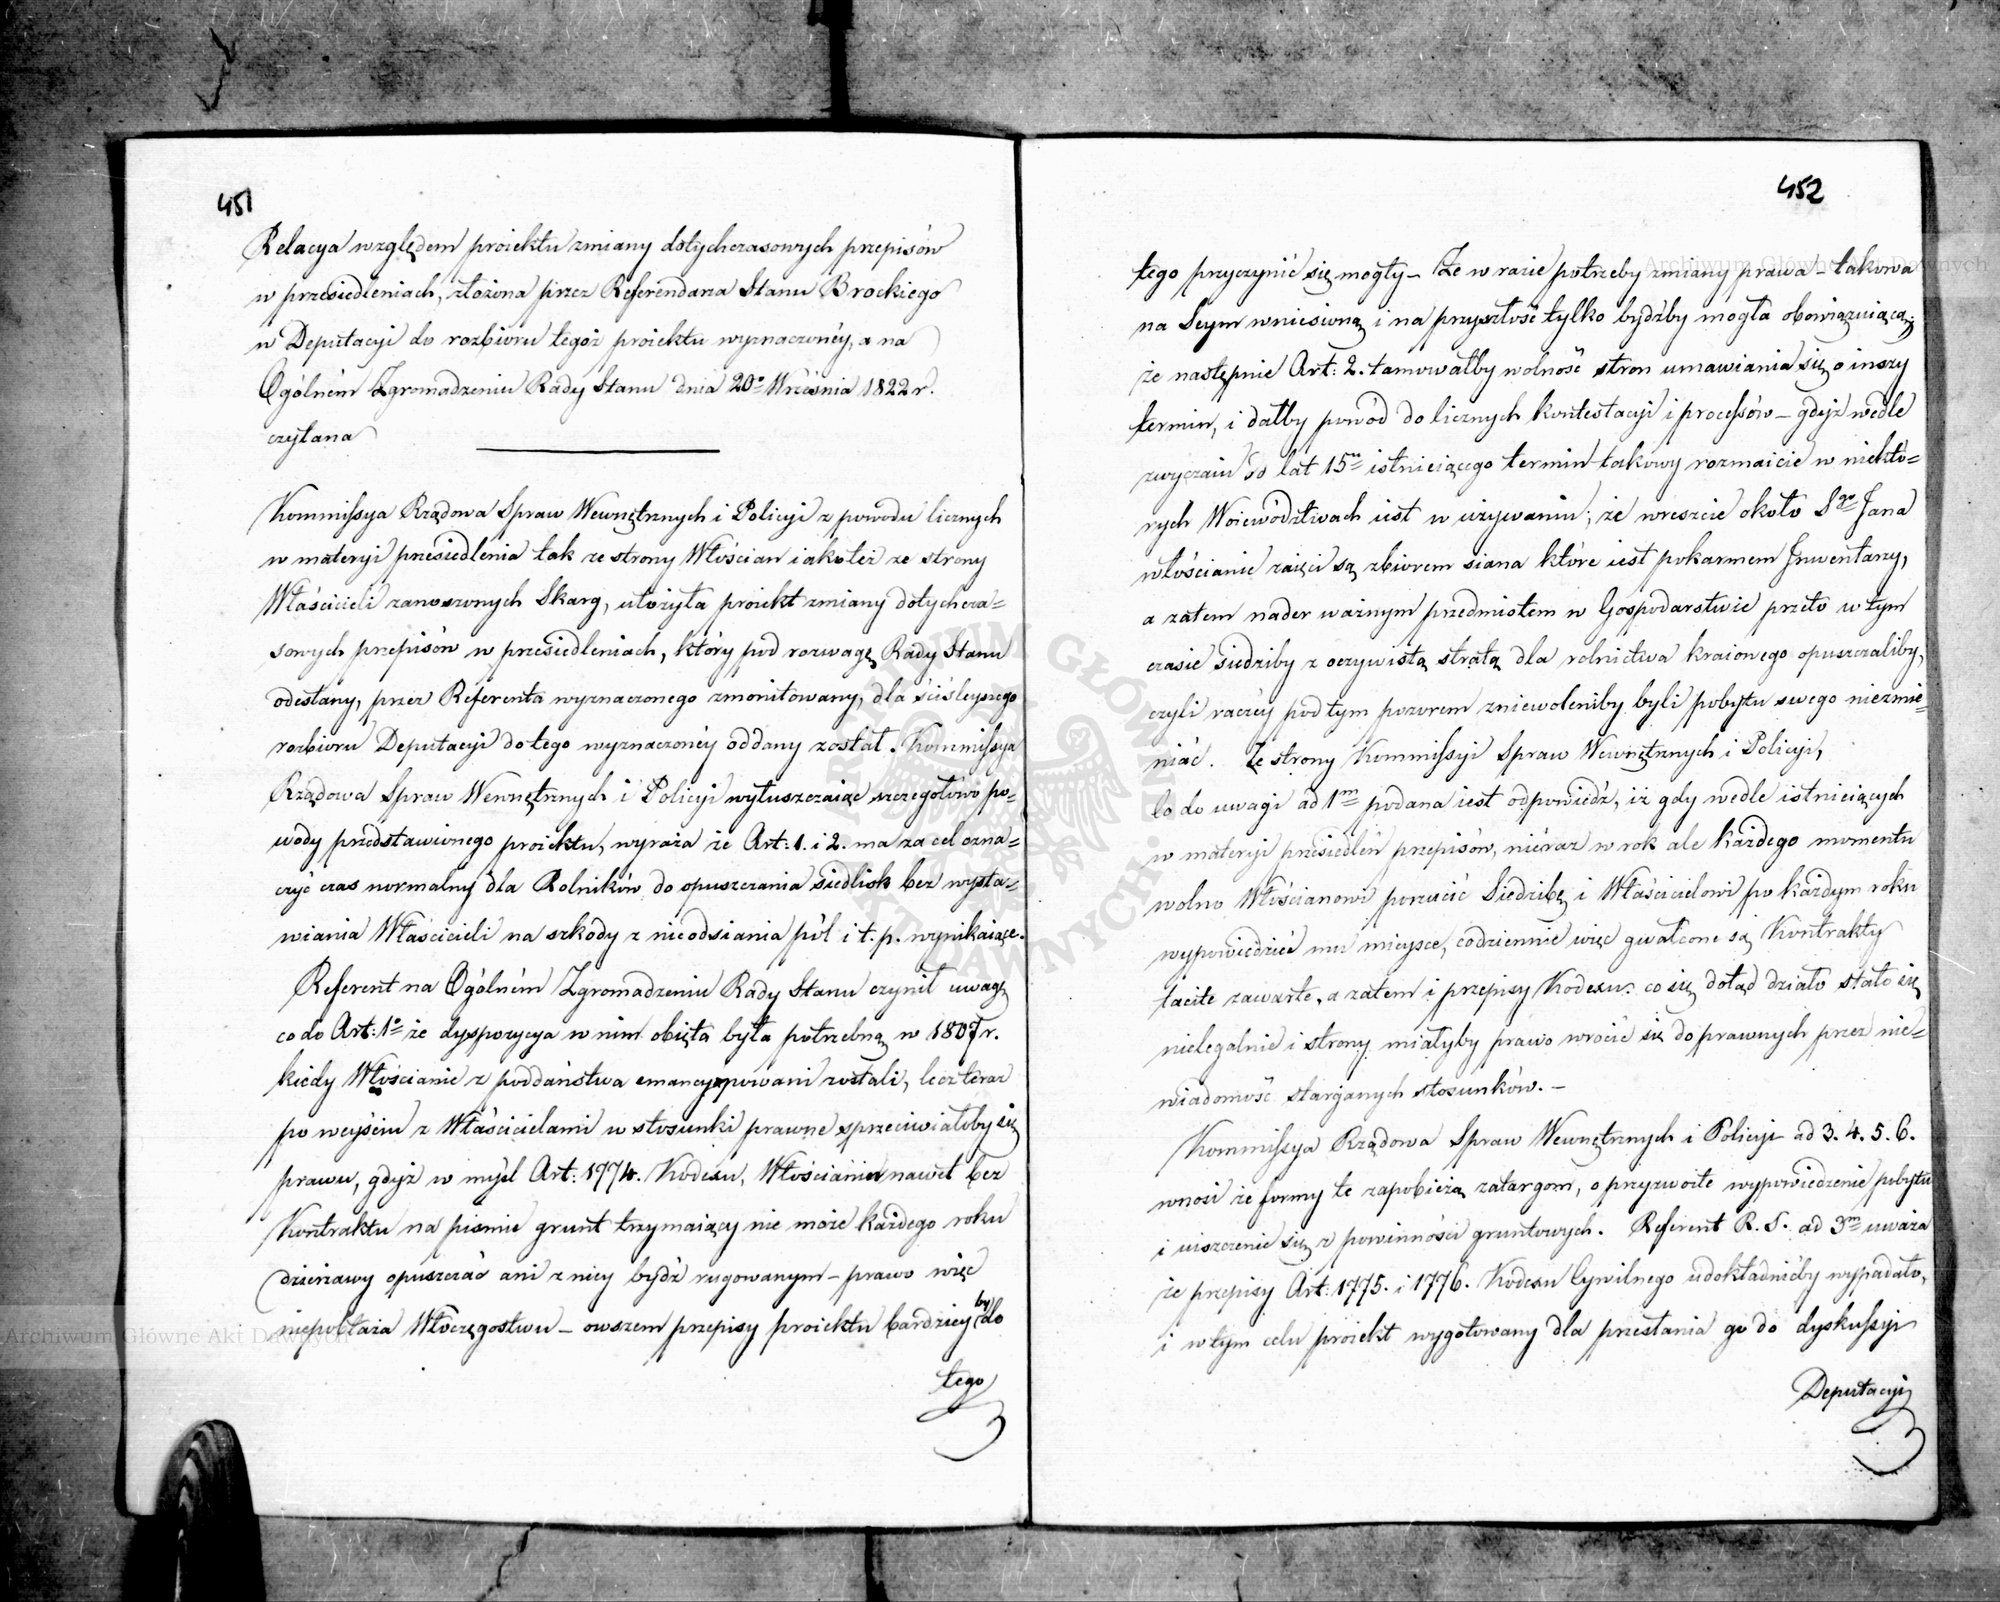 451
Relacya względem proiektu zmiany dotychczasowych przepisów
w przesiedleniach, złożona przez Referendarza Stanu Brockiego
w Deputacyi do rozbioru tegoż proiektu wyznaczonéy, a na
Ogólném Zgromadzeniu Rady Stanu dnia 20º Września 1822 r.
czytana
Kommissya Rządowa Spraw Wewnętrznych i Policyi z powodu licznych
w materyi przesiedlenia tak ze strony Włościan iako też ze strony
Właścicieli zanoszonych Skarg, ułożyła proiekt zmiany dotychcza=
sowych przepisów w przesiedleniach, który pod rozwagę Rady Stanu
odesłany, przez Referenta wyznaczonego zmonitowany, dla ściśleyszego
rozbioru Deputacyi do tego wyznaczonéy oddany został. Kommissya
Rządowa Spraw Wewnętrznych i Policyi wyłuszczaiąc szczegółowo po=
wody przedstawionego proiektu, wyraża że Art: 1. i 2. ma za cel ozna=
czyć czas normalny dla Rolników do opuszczania siedlisk bez wysta=
wiania Właścicieli na szkody z nieodsiania pól i t. p. wynikaiące.
Referent na Ogólném Zgromadzeniu Rady Stanu czynił uwagę
co do Art: 1º że dyspozycya w nim obięta była potrzebną w 1807 r.
kiedy Włościanie z poddaństwa emancypowani zostali, lecz teraz
po weyściu z Właścicielami w stosunki prawne sprzeciwiałoby się
prawu, gdyż w myśl Art: 1774. Kodexu, Włościanin nawet bez
Kontraktu na piśmie grunt trzymaiący nie może każdego roku
dzierżawy opuszczać ani z niey bydź rugowanym – prawo więc
niepobłaża Włóczęgostwu – owszem przepisy proiektu bardziey by do
tego
452
tego przyczynić się mogły – Że w razie potrzeby zmiany prawa – takowa
na Seym wniesioną i na przyszłość tylko bydźby mogła obowiązuiącą;
że następnie Art: 2. tamowałby wolność stron umawiania się o inszy
termin, i dałby powód do licznych kontestacyi i processów – gdyż wedle
zwyczaiu od lat 15u istnieiącego termin takowy rozmaicie w niektó=
rych Woiewództwach iest w używaniu; że wreszcie około Sgo Jana
włościanie zaięci są zbiorem siana które iest pokarmem Inwentarzy,
a zatem nader ważnym przedmiotem w Gospodarstwie przeto w tym
czasie siedziby z oczywistą stratą dla rolnictwa kraiowego opuszczaliby,
czyli raczéy pod tym pozorem zniewoleniby byli pobytu swego niezmie=
niać. Ze strony Kommissyi Spraw Wewnętrznych i Policyi,
co do uwagi ad 1m podana iest odpowiedź, iż gdy wedle istnieiących
w materyi przesiedleń przepisów, nieraz w rok ale każdego momentu
wolno Włościanowi porzucić Siedzibę i Właścicielowi po każdym roku
wypowiedzieć mu mieysce, codziennie więc gwałcone są Kontrakty
tacite zawarte, a zatem i przepisy Kodexu: co się dotąd działo stało się
nielegalnie i strony miałyby prawo wrócić się do prawnych przez nie=
wiadomość stargánych stosunków. –
Kommissya Rządowa Spraw Wewnętrznych i Policyi ad 3. 4. 5. 6.
wnosi że formy te zapobieżą zatargom, o przyzwoite wypowiedzenie pobytu
i uiszczenie się z powinności gruntowych. Referent R. S. ad 3m uważa
że przepisy Art: 1775. i 1776. Kodexu Cywilnego udokładnićby wypadało,
i w tym celu proiekt wygotowany dla przesłania go do dyskussyi
Deputacyi
Archiwum Główne Akt Dawnych
Archiwum Główne Akt Dawnych
ARCHIWUM GŁÓWNE AKT DAWNYCH